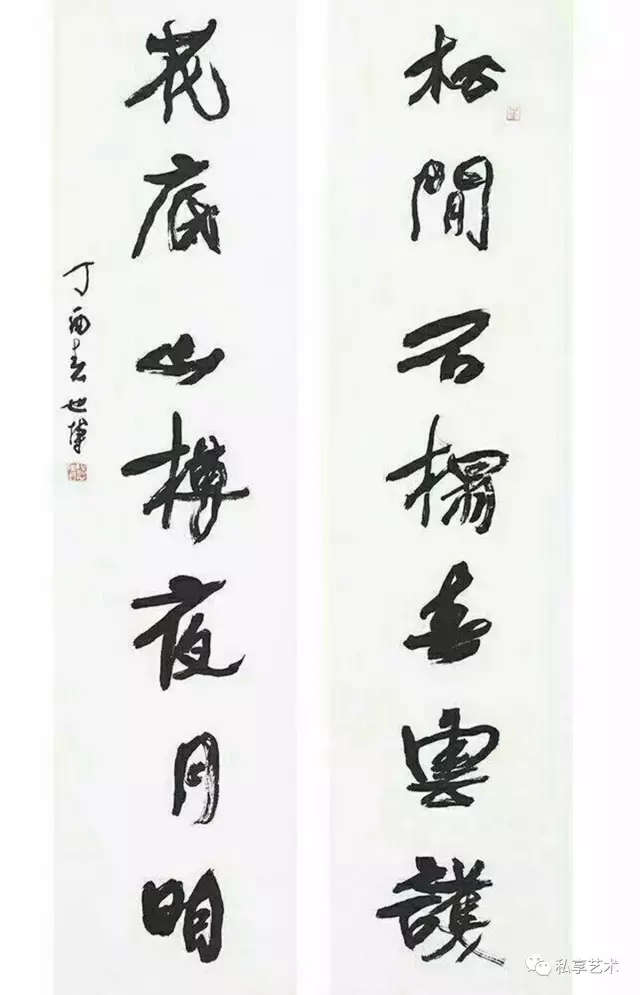 松閒石榻春雲護
花底山樽夜月明
丁酉春世
私享艺术